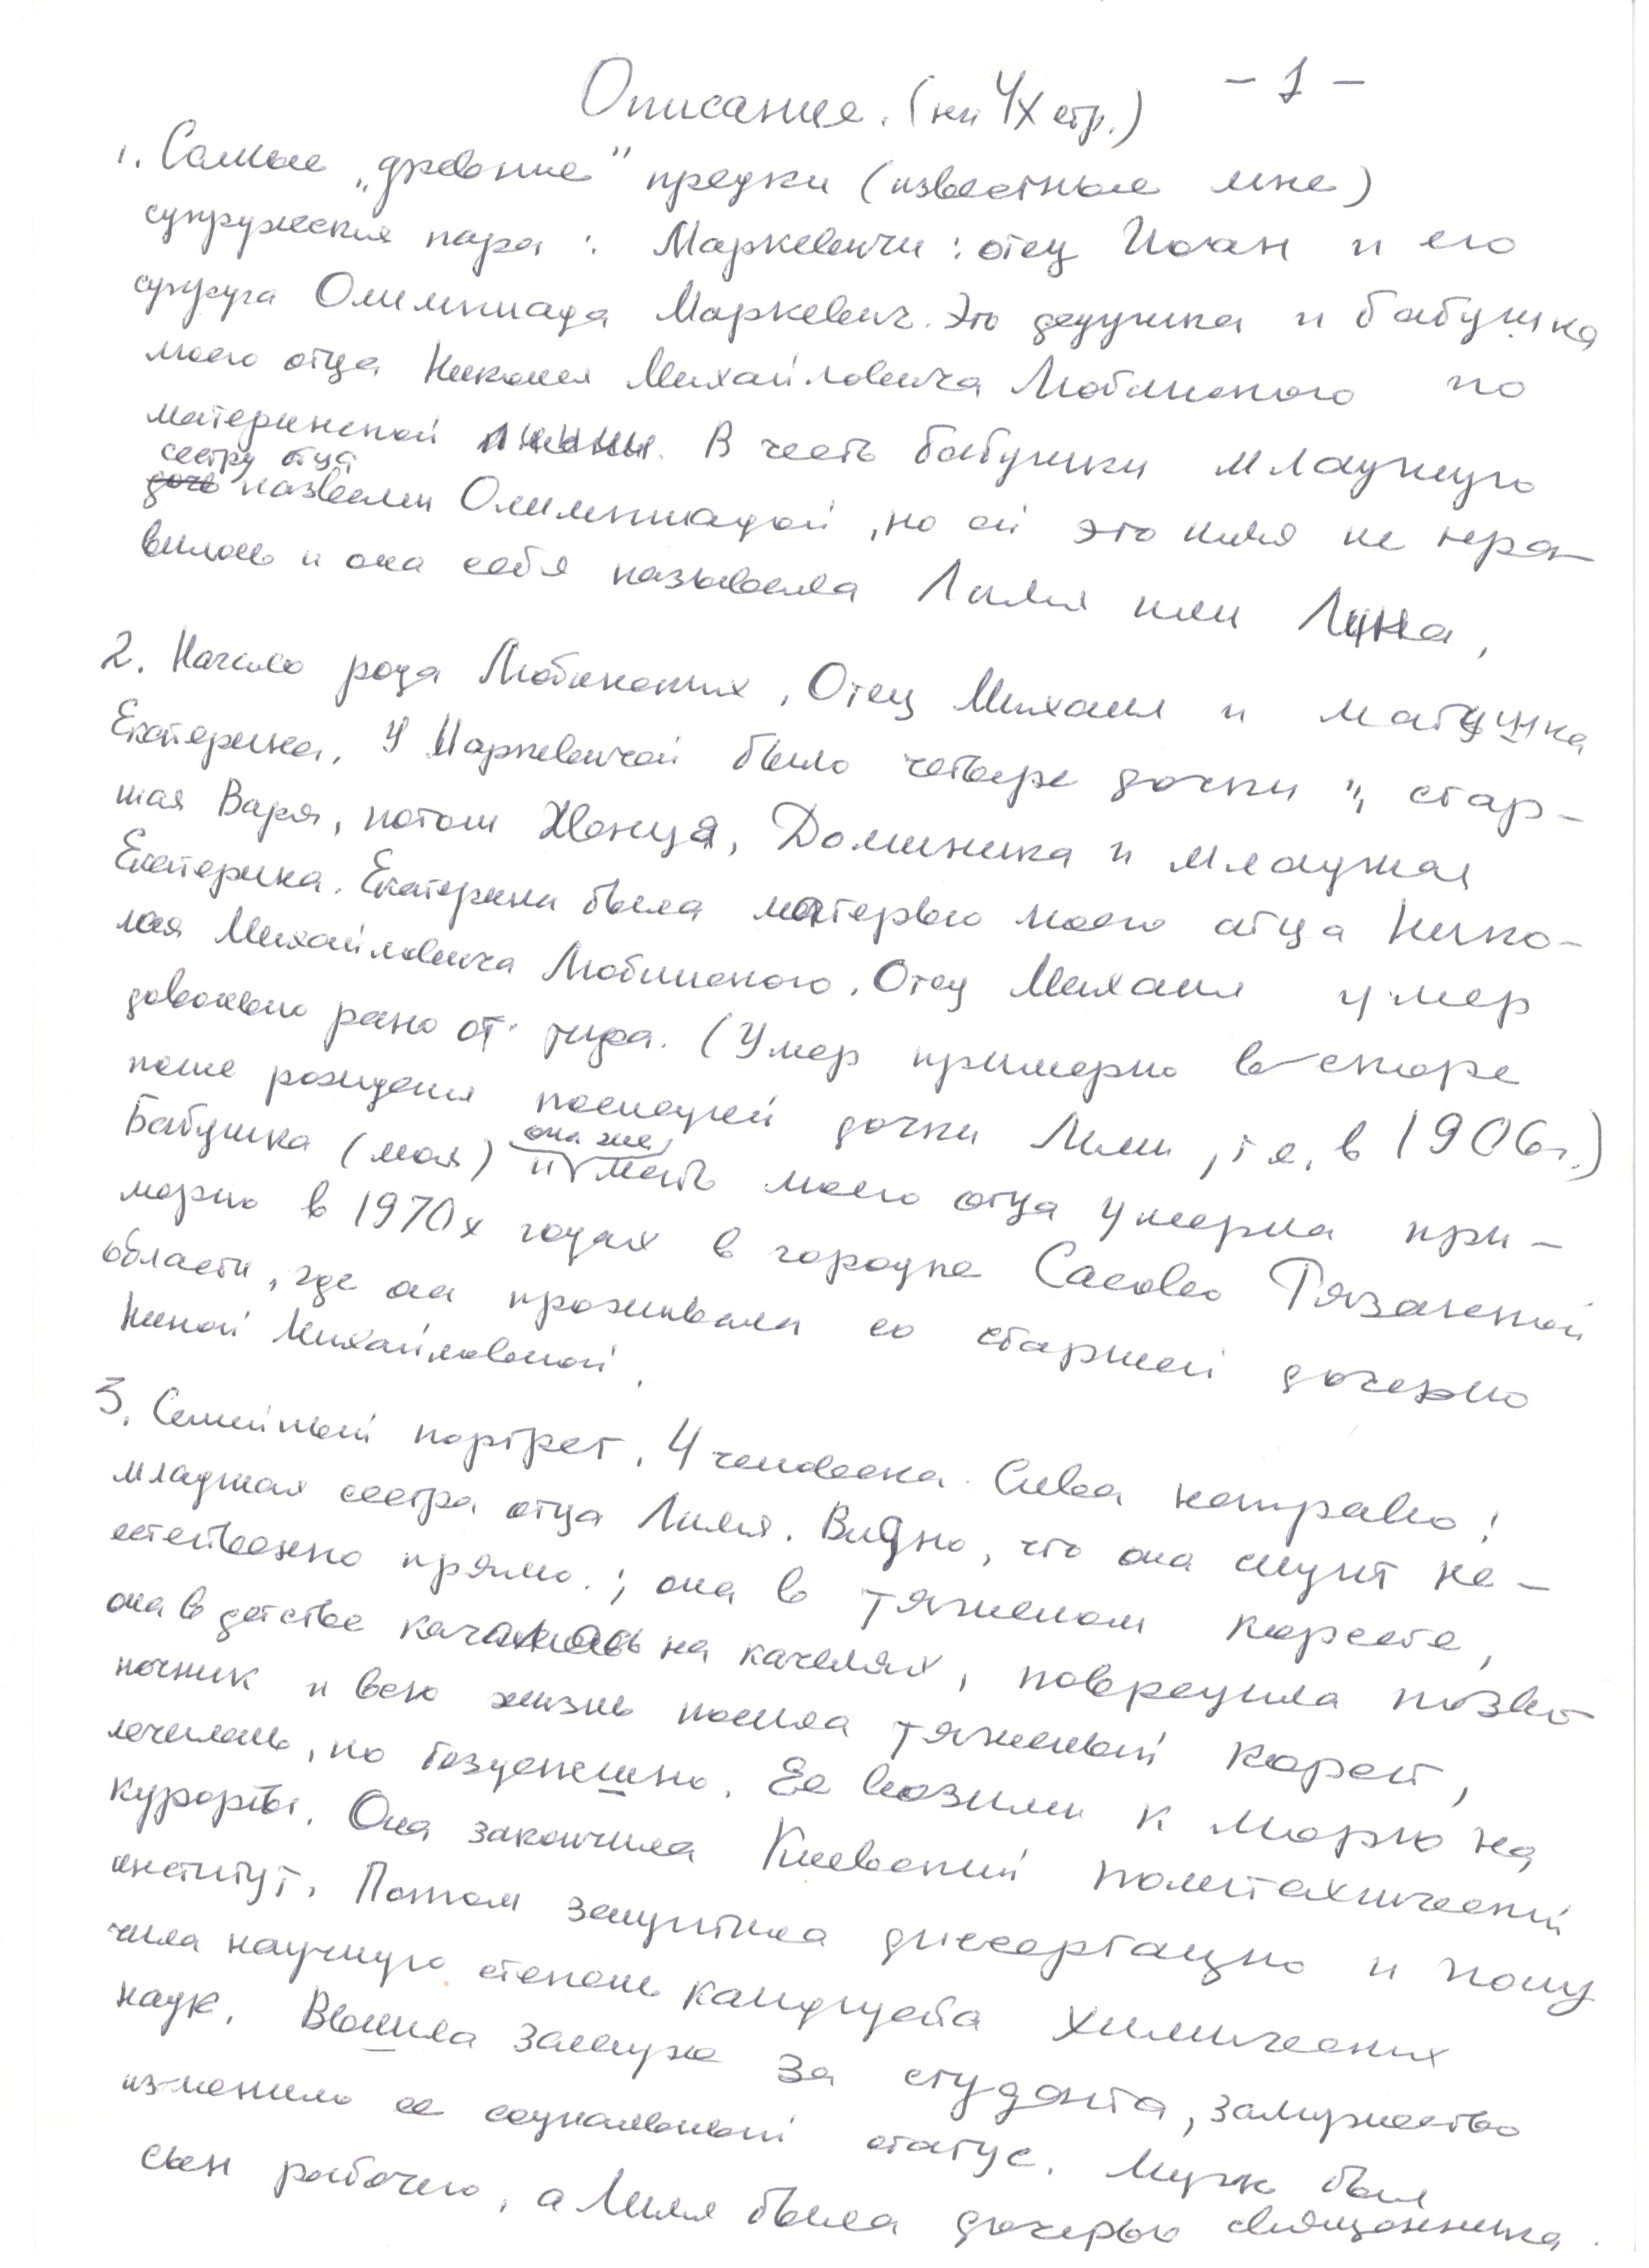 Описание. (на 4х стр.) - 1 -
1. Самые „древние" предки (известные мне)
супружеская пара: Маркевичи: отец Иоан и его
супруга Олимпиада Маркевич. Это дедушка и бабушка
моего отца Николая Михайловича Любинского по
материнской линии. В честь бабушки младшую
сестру отца
дочь назвали Олимпиадой, но ей это имя не нра-
вилось и она себя называла Лиля или Лина,
2. Начало рода Любинских, Отец Михаил и матушка
Екатерина, У Маркевичей было четыре дочки, стар-
шая Варя, потом Доминика и младшая
Екатерина. Екатерина была матерью моего отца Нико-
лая Михайловича Любинского. Отец Михаил умер
довольно рано от тифа. (Умер примерно вскоре
после рождения последней дочки Лили, т.е. в 1906г.)
она же
Бабушка (моя) и мать моего отца умерла при-
мерно в 1970х годах в городке Сасово Рязанской
области, где она проживала со старшей дочерью
Ниной Михайловной.
3. Семейный портрет, 4 человека. Слева направо!
младшая сестра отца Лиля. Видно, что она сидит не-
естественно прямо.; она в тяжелом корсете,
она в детстве качалась на качелях, повредила позво
ночник и всю жизнь носила тяжелый корсет,
лечилась, но безуспешно. Ее возили к морю на
курорты. Она закончила Киевский политехнический
институт. Потом защитила диссертацию и полу
чила научную степень кандидата химических
наук. Вышла замуж за студента, замужество
изменило ее социальный статус. Муж был
сын рабочего, а Лиля была дочерью священника.